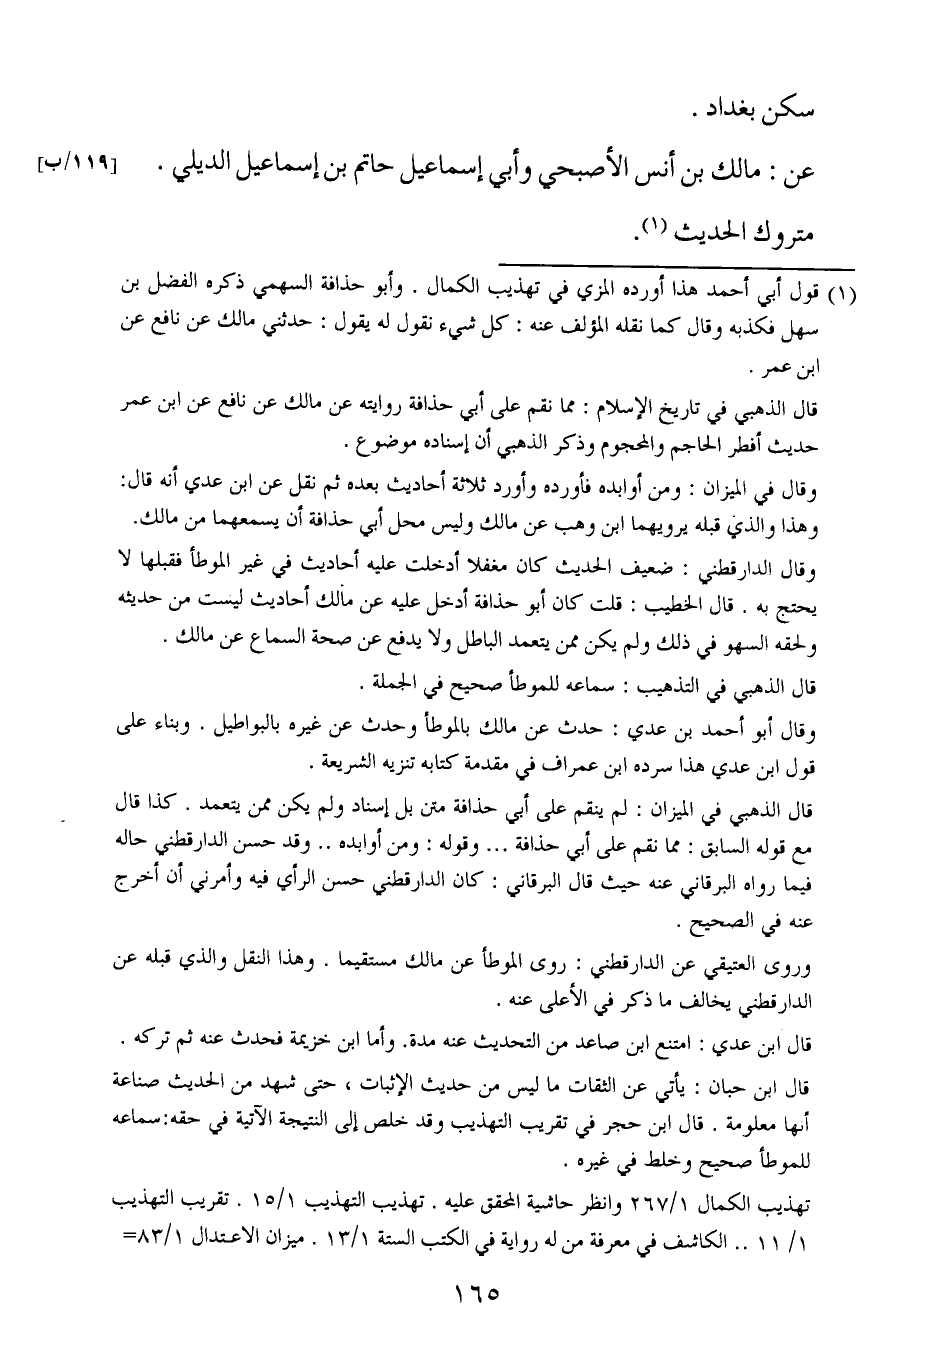 سكن بغداد .
عن : مالك بن أنس الأصبحي وأبي إسماعيل حاتم بن إسماعيل الديلي . [١١٩/ب]
متروك الحديث (١).
(١) قول أبي أحمد هذا أورده المزي في تهذيب الكمال . وأبو حذافة السهمي ذكره الفضل بن
سهل فكذبه وقال كما نقله المؤلف عنه : كل شيء نقول له يقول : حدثني مالك عن نافع عن
ابن عمر .
قال الذهبي في تاريخ الإسلام : مما نقم على أبي حذافة روايته عن مالك عن نافع عن ابن عمر
حديث أفطر الحاجم والمحجوم وذكر الذهبي أن إسناده موضوع .
وقال في الميزان : ومن أوابده فأورده وأورد ثلاثة أحاديث بعده ثم نقل عن ابن عدي أنه قال:
وهذا والذي قبله يرويهما ابن وهب عن مالك وليس محل أبي حذافة أن يسمعهما من مالك.
وقال الدارقطني : ضعيف الحديث كان مغفلا أدخلت عليه أحاديث في غير الموطأ فقبلها لا
يحتج به . قال الخطيب : قلت كان أبو حذافة أدخل عليه عن مالك أحاديث ليست من حديثه
ولحقه السهو في ذلك ولم يكن ممن يتعمد الباطل ولا يدفع عن صحة السماع عن مالك .
قال الذهبي في التذهيب : سماعه للموطأ صحيح في الجملة .
وقال أبو أحمد بن عدي : حدث عن مالك بالموطأ وحدث عن غيره بالبواطيل . وبناء على
قول ابن عدي هذا سرده ابن عمراف في مقدمة كتابه تنزيه الشريعة .
قال الذهبي في الميزان : لم ينقم على أبي حذافة متن بل إسناد ولم يكن ممن يتعمد . كذا قال
مع قوله السابق : مما نقم على أبي حذافة ... وقوله : ومن أوابده .. وقد حسن الدارقطني حاله
فيما رواه البرقاني عنه حيث قال البرقاني : كان الدارقطني حسن الرأي فيه وأمرني أن أخرج
عنه في الصحيح .
وروى العتيقي عن الدارقطني : روى الموطأ عن مالك مستقيما . وهذا النقل والذي قبله عن
الدارقطني يخالف ما ذكر في الأعلى عنه .
قال ابن عدي : امتنع ابن صاعد من التحديث عنه مدة. وأما ابن خزيمة فحدث عنه ثم تركه .
قال ابن حبان : يأتي عن الثقات ما ليس من حديث الإثبات ، حتى شهد من الحديث صناعة
أنها معلومة . قال ابن حجر في تقريب التهذيب وقد خلص إلى النتيجة الآتية في حقه:سماعه
للموطأ صحيح وخلط في غيره .
تهذيب الكمال ٢٦٧/١ وانظر حاشية المحقق عليه . تهذيب التهذيب ١٥/١ . تقريب التهذيب
١/ ١١ .. الكاشف في معرفة من له رواية في الكتب الستة ١٣/١ . ميزان الاعتدال ٨٣/١=
١٦٥